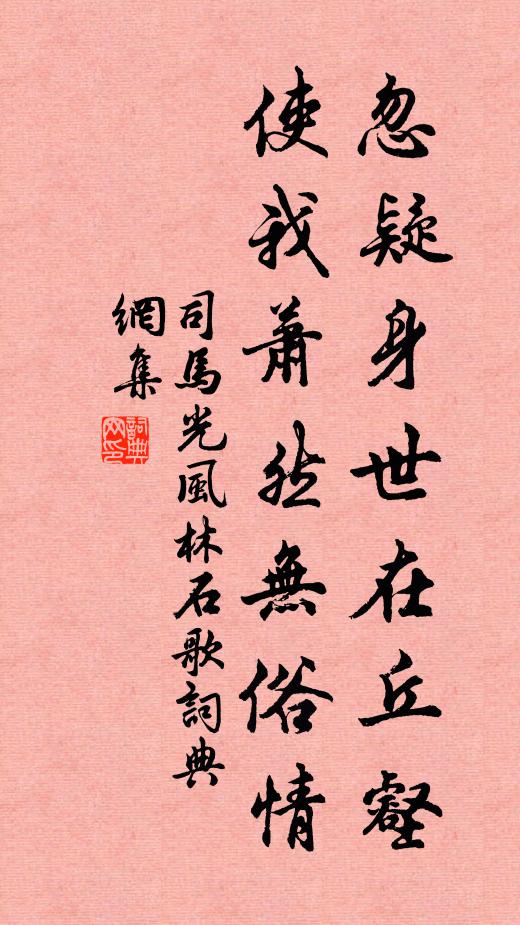 忽疑身世在丘壑
使我蕭然無俗情
司馬光風林石歌詞典
網集
詞典
网印